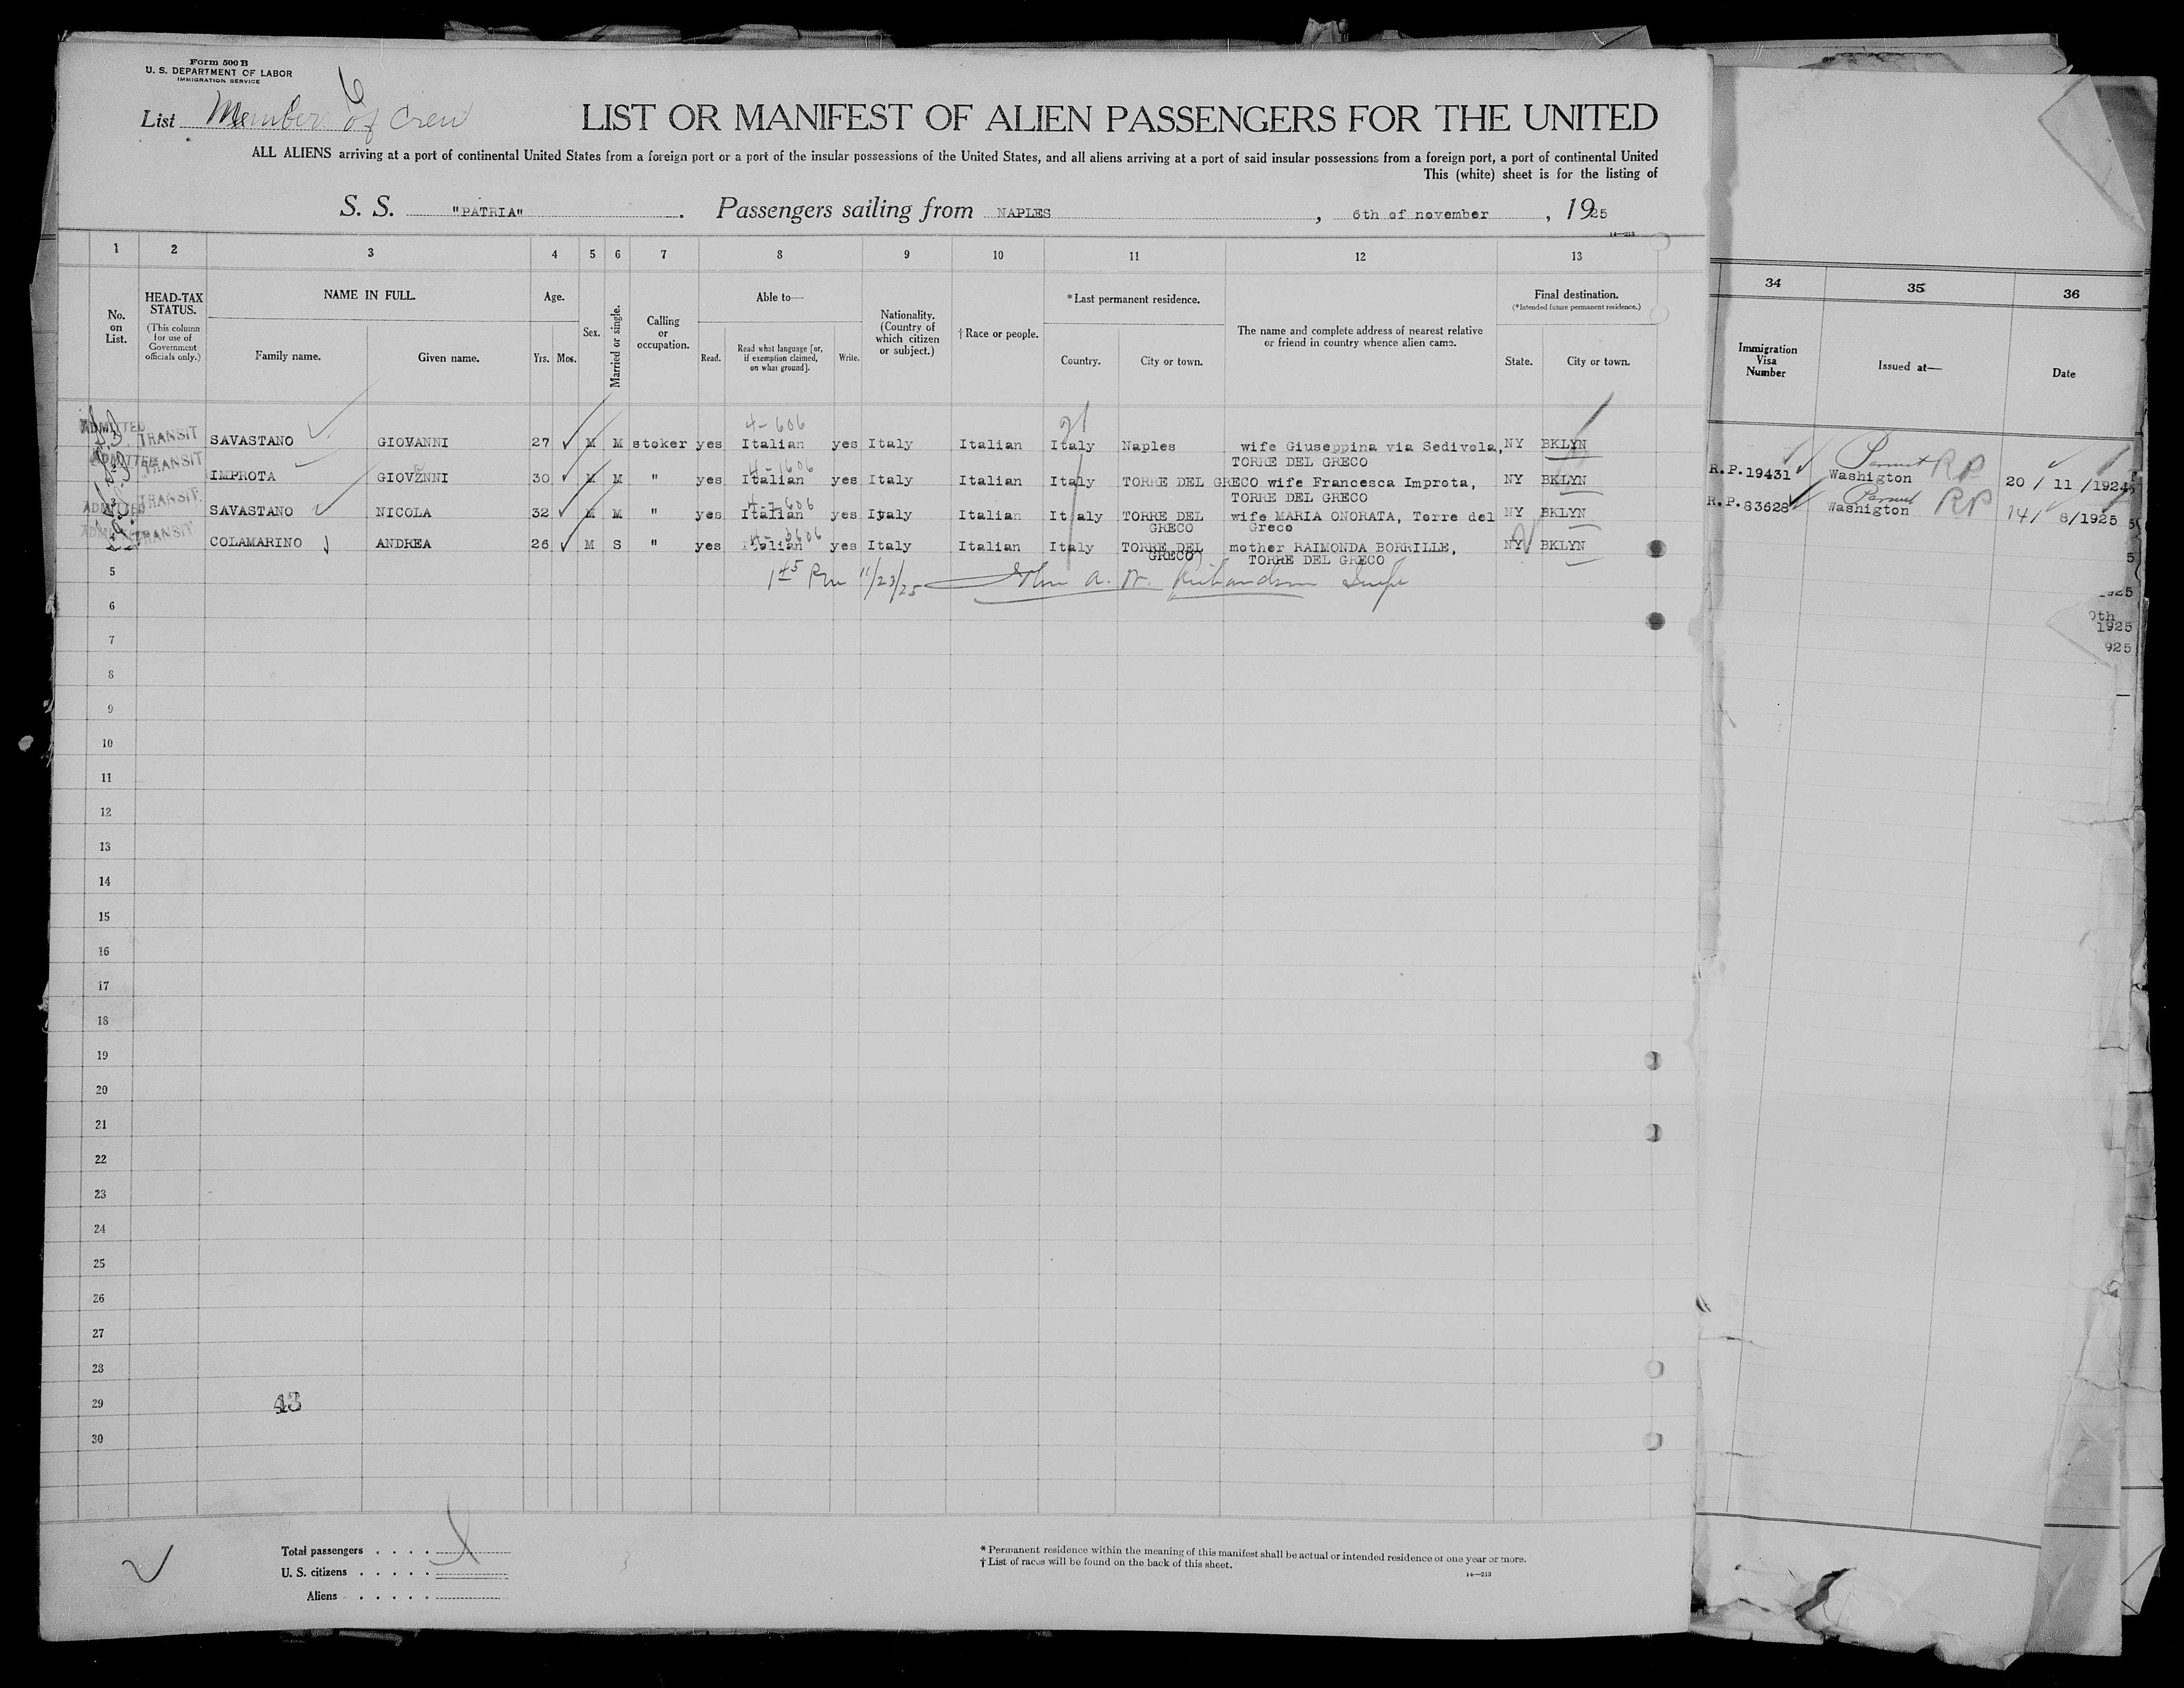 Form 500 B
U. S. DEPARTMENT OF LABOR
IMMIGRATION SERVICE
6
List Member of Crew
LIST OR MANIFEST OF ALIEN PASSENGERS FOR THE UNITED
ALL ALIENS arriving at a port of continental United States from a foreign port or a port of the insular possessions of the United States, and all aliens arriving at a port of said insular possessions from a foreign port, a port of continental United
This (white) sheet is for the listing of
S. S. "PATRIA". Passengers sailing from NAPLES, 6th of november, 1925
14—213
1 2 3 4 5 6 7 8 9 10 11 12 13
No. on List.
HEAD-TAX STATUS.
(This column for use of Government officials only.)
NAME IN FULL.
Family name. Given name.
Age.
Yrs. Mos.
Sex.
Married or single.
Calling or occupation.
Able to—
Read. Read what language [or, if exemption claimed, on what ground]. Write.
Nationality. (Country of which citizen or subject.)
† Race or people.
* Last permanent residence.
Country. City or town.
The name and complete address of nearest relative or friend in country whence alien came.
Final destination.
(* Intended future permanent residence.)
State. City or town.
4-606
ADMITTED TRANSIT SAVASTANO GIOVANNI 27 M M stoker yes Italian yes Italy Italian Italy Naples wife Giuseppina via Sedivola, NY BKLYN
TORRE DEL GRECO
4-1606
ADMITTED 2 TRANSIT IMPROTA GIOVZNNI 30 M M " yes Italian yes Italy Italian Italy TORRE DEL GRECO wife Francesca Improta, NY BKLYN
TORRE DEL GRECO
4-2606
ADMITTED 3 TRANSIT SAVASTANO NICOLA 32 M M " yes Italian yes Italy Italian Italy TORRE DEL GRECO wife MARIA ONORATA, Torre del Greco NY BKLYN
4-3606
ADMITTED TRANSIT COLAMARINO ANDREA 26 M S " yes Italian yes Italy Italian Italy TORRE DEL GRECO mother RAIMONDA BORRILLE, NY BKLYN
TORRE DEL GRECO
5 11/23/25 John A. W. Richardson
6
7
8
9
10
11
12
13
14
15
16
17
18
19
20
21
22
23
24
25
26
27
28
29 43
30
Total passengers . . . .
U. S. citizens . . . . .
Aliens . . . . .
* Permanent residence within the meaning of this manifest shall be actual or intended residence of one year or more.
† List of races will be found on the back of this sheet.
14—213
34 35 36
Immigration Visa Number
Issued at—
Date
Permit RP
R.P.19431 Washigton 20 / 11 /1924
Permit RP
R.P.83628 Washigton 14/ 8/1925
5
5
925
0th
1925
925